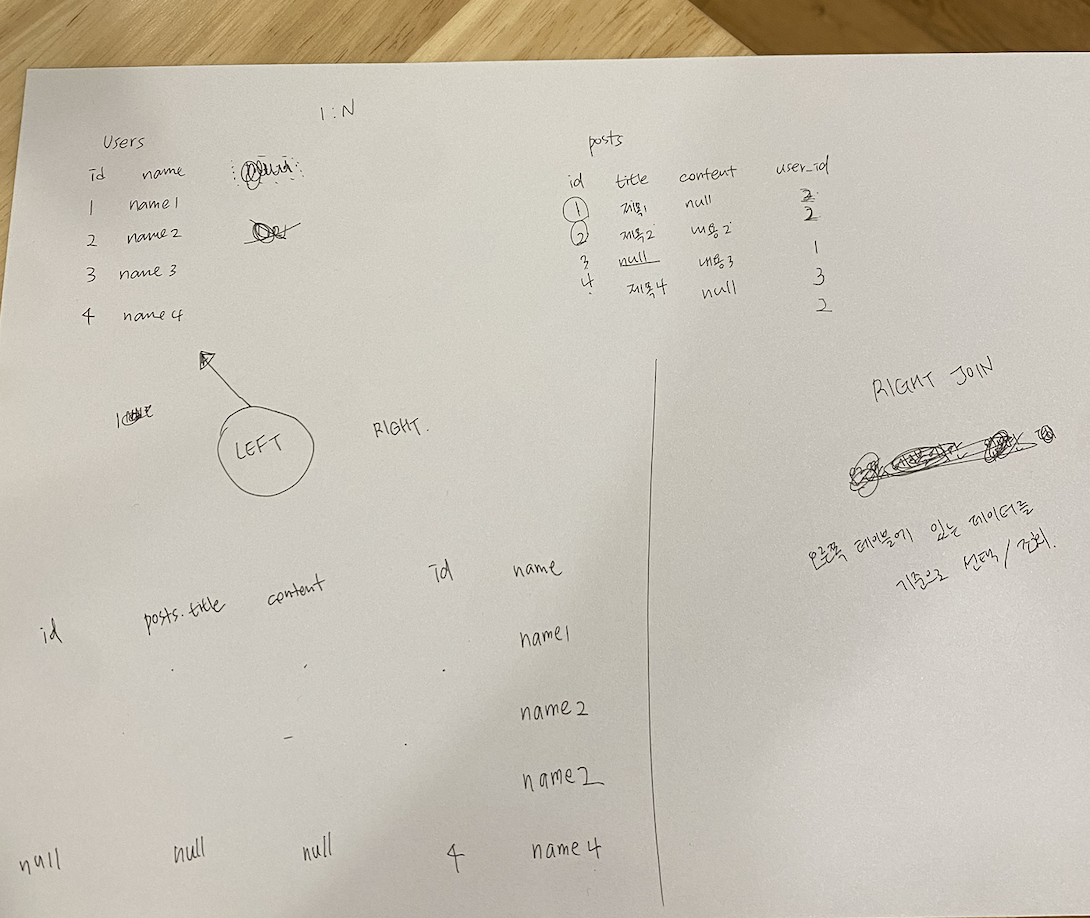 1:N
Users
id name
1 name1
2 name2
3 name3
4 name4
posts
id title content user_id
1 제목1 null 2
2 제목2 내용2 1
3 null 내용3 3
4 제목4 null 2
LEFT
RIGHT.
id posts.title content id name
name1
name2
name2
null null null 4 name4
RIGHT JOIN
오른쪽 테이블에 있는 데이터를
기준으로 선택/조회.